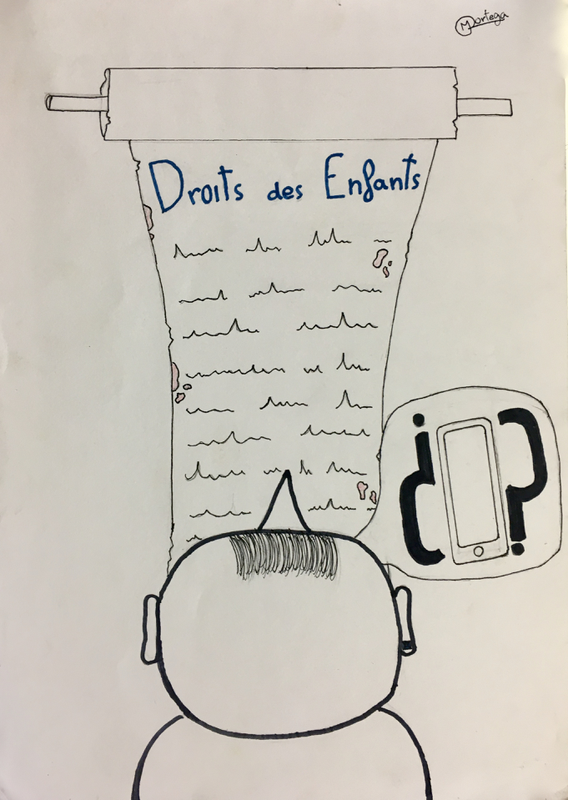 Mortega
Droits des Enfants
¿ ?